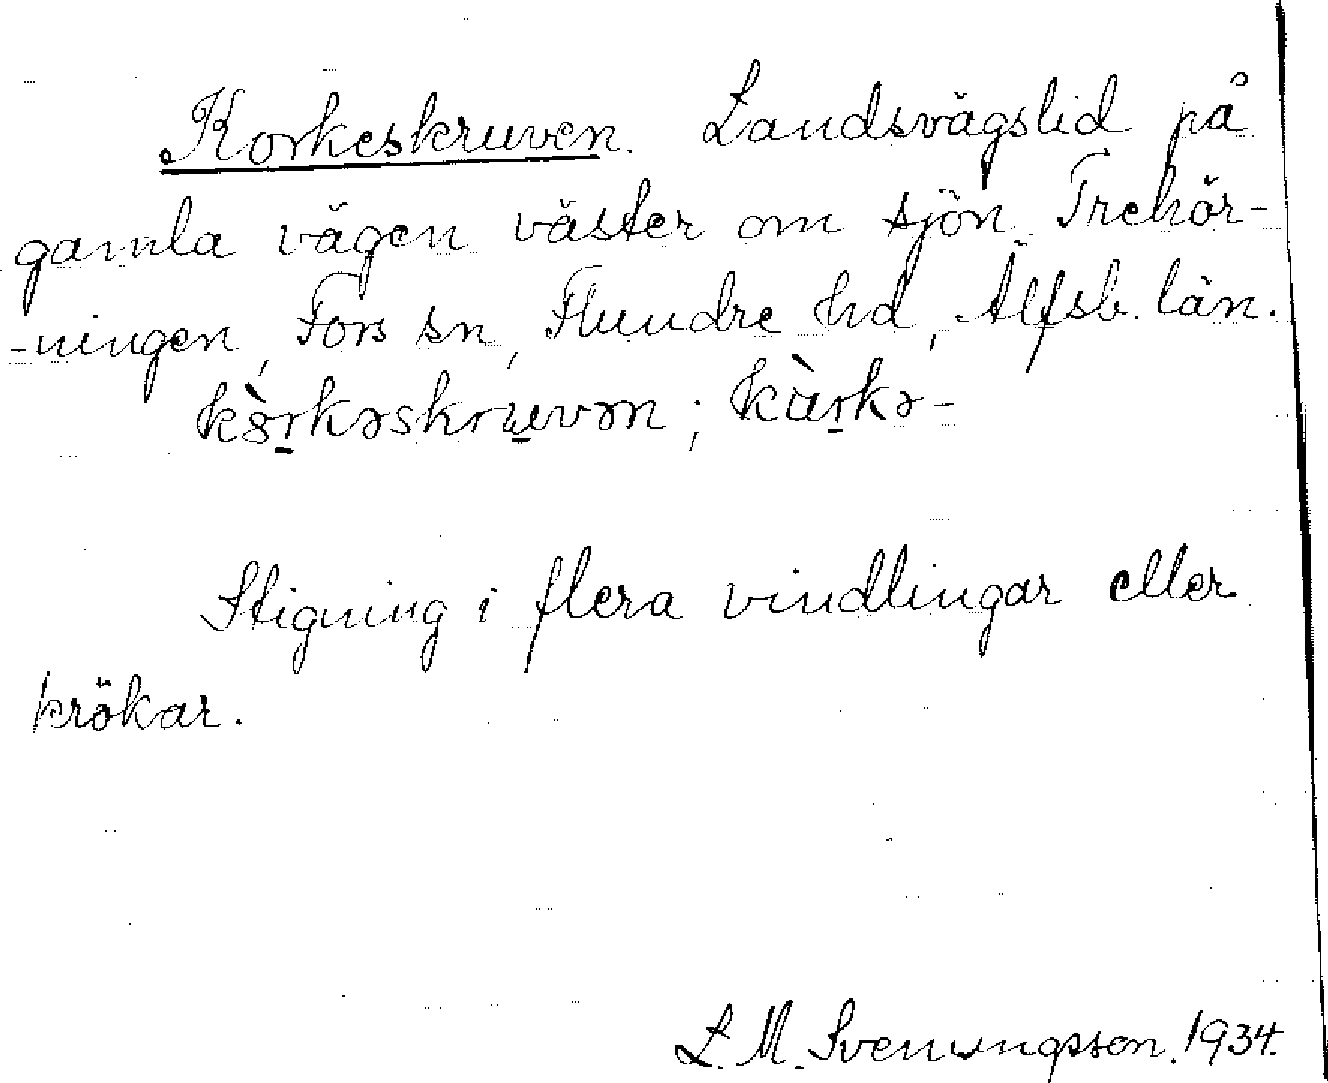 Korkeskruven. Landsvägslid på
gamla vägen väster om sjön Trehör-
-ningen, Fors sn, Flundre hd, Älfsb. län.
kòrkəskruvən; kàrkə-
Stigning i flera vindlingar eller
krökar.
L. M. Svenungsson. 1934.